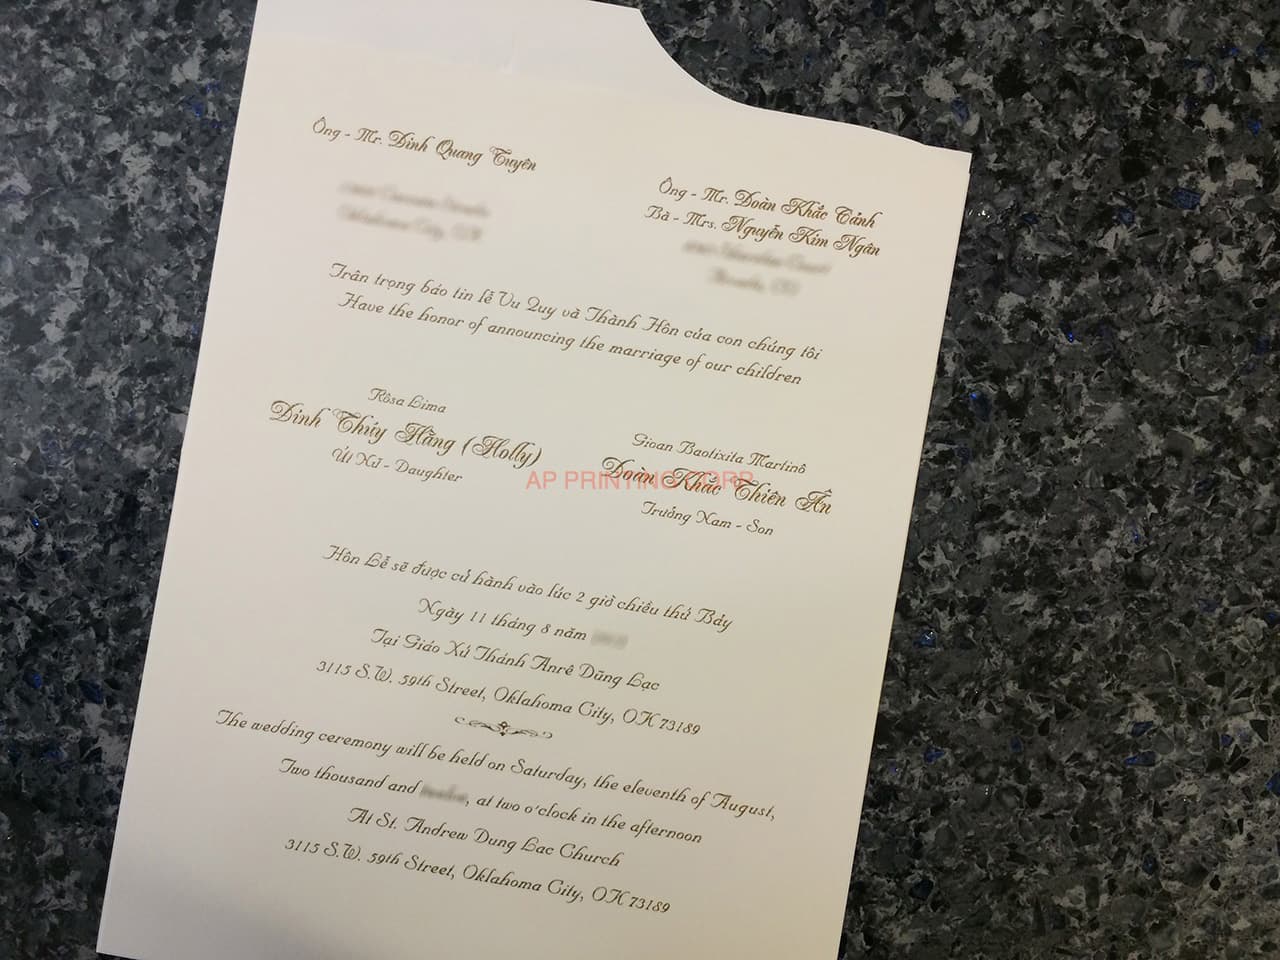 Ông - Mr. Đinh Quang Tuyên
Ông - Mr. Đoàn Khắc Cảnh
Bà - Mrs. Nguyễn Kim Ngân
Trân trọng báo tin lễ Vu Quy và Thành Hôn của con chúng tôi
Have the honor of announcing the marriage of our children
Rôsa Lima
Đinh Thúy Hằng (Holly)
Út Nữ - Daughter
Gioan Baotixita Martinô
Đoàn Khắc Thiên Ân
Trưởng Nam - Son
AP PRINTING CORP
Hôn Lễ sẽ được cử hành vào lúc 2 giờ chiều thứ Bảy
Ngày 11 tháng 8 năm
Tại Giáo Xứ Thánh Anrê Dũng Lạc
3115 S.W. 59th Street, Oklahoma City, OK 73189
The wedding ceremony will be held on Saturday, the eleventh of August,
Two thousand and , at two o'clock in the afternoon
At St. Andrew Dung Lac Church
3115 S.W. 59th Street, Oklahoma City, OK 73189